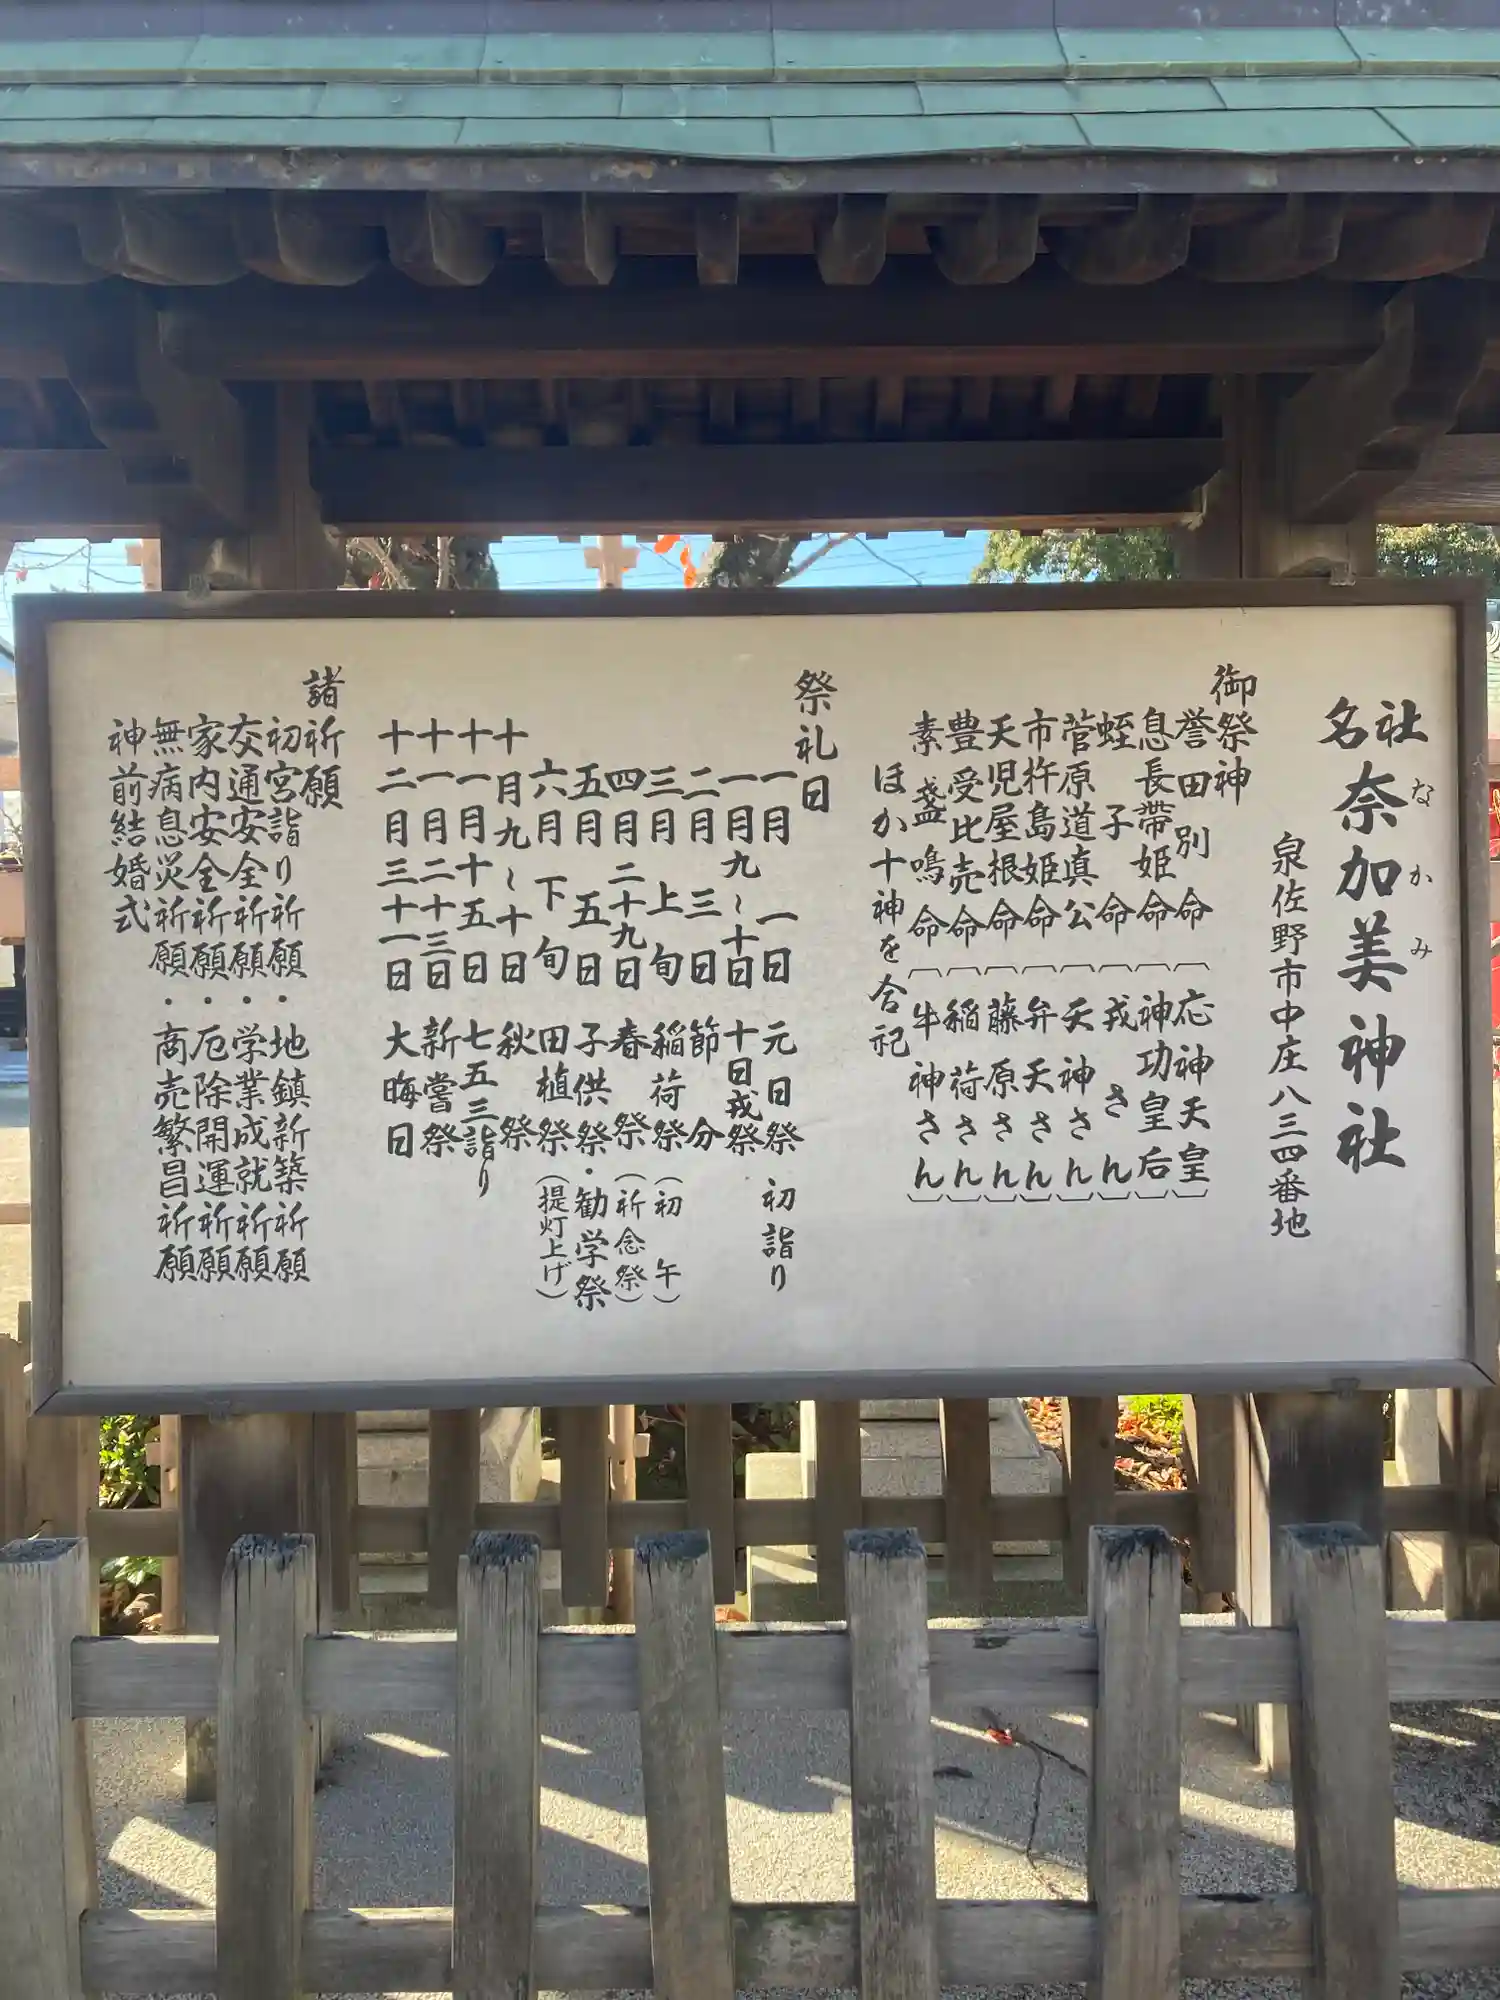 社名 奈加美神社
なかみ
泉佐野市中庄八三四番地
御祭神
誉田別命（応神天皇）
息長帯姫命（神功皇后）
蛭子命（戎さん）
菅原道真公（天神さん）
市杵島姫命（弁天さん）
天児屋根命（藤原さん）
豊受比売命（稲荷さん）
素盞鳴命（牛神さん）
ほか十神を合祀
祭礼日
一月一日 元日祭 初詣り
一月九〜十日 十日戎祭
二月三日 節分
三月上旬 稲荷祭（初午）
四月二十九日 春祭（祈念祭）
五月五日 子供祭・勧学祭
六月下旬 田植祭（提灯上げ）
十月九〜十日 秋祭
十一月十五日 七五三詣り
十一月二十三日 新嘗祭
十二月三十一日 大晦日
諸祈願
初宮詣り祈願・地鎮新築祈願
交通安全祈願・学業成就祈願
家内安全祈願・厄除開運祈願
無病息災祈願・商売繁昌祈願
神前結婚式